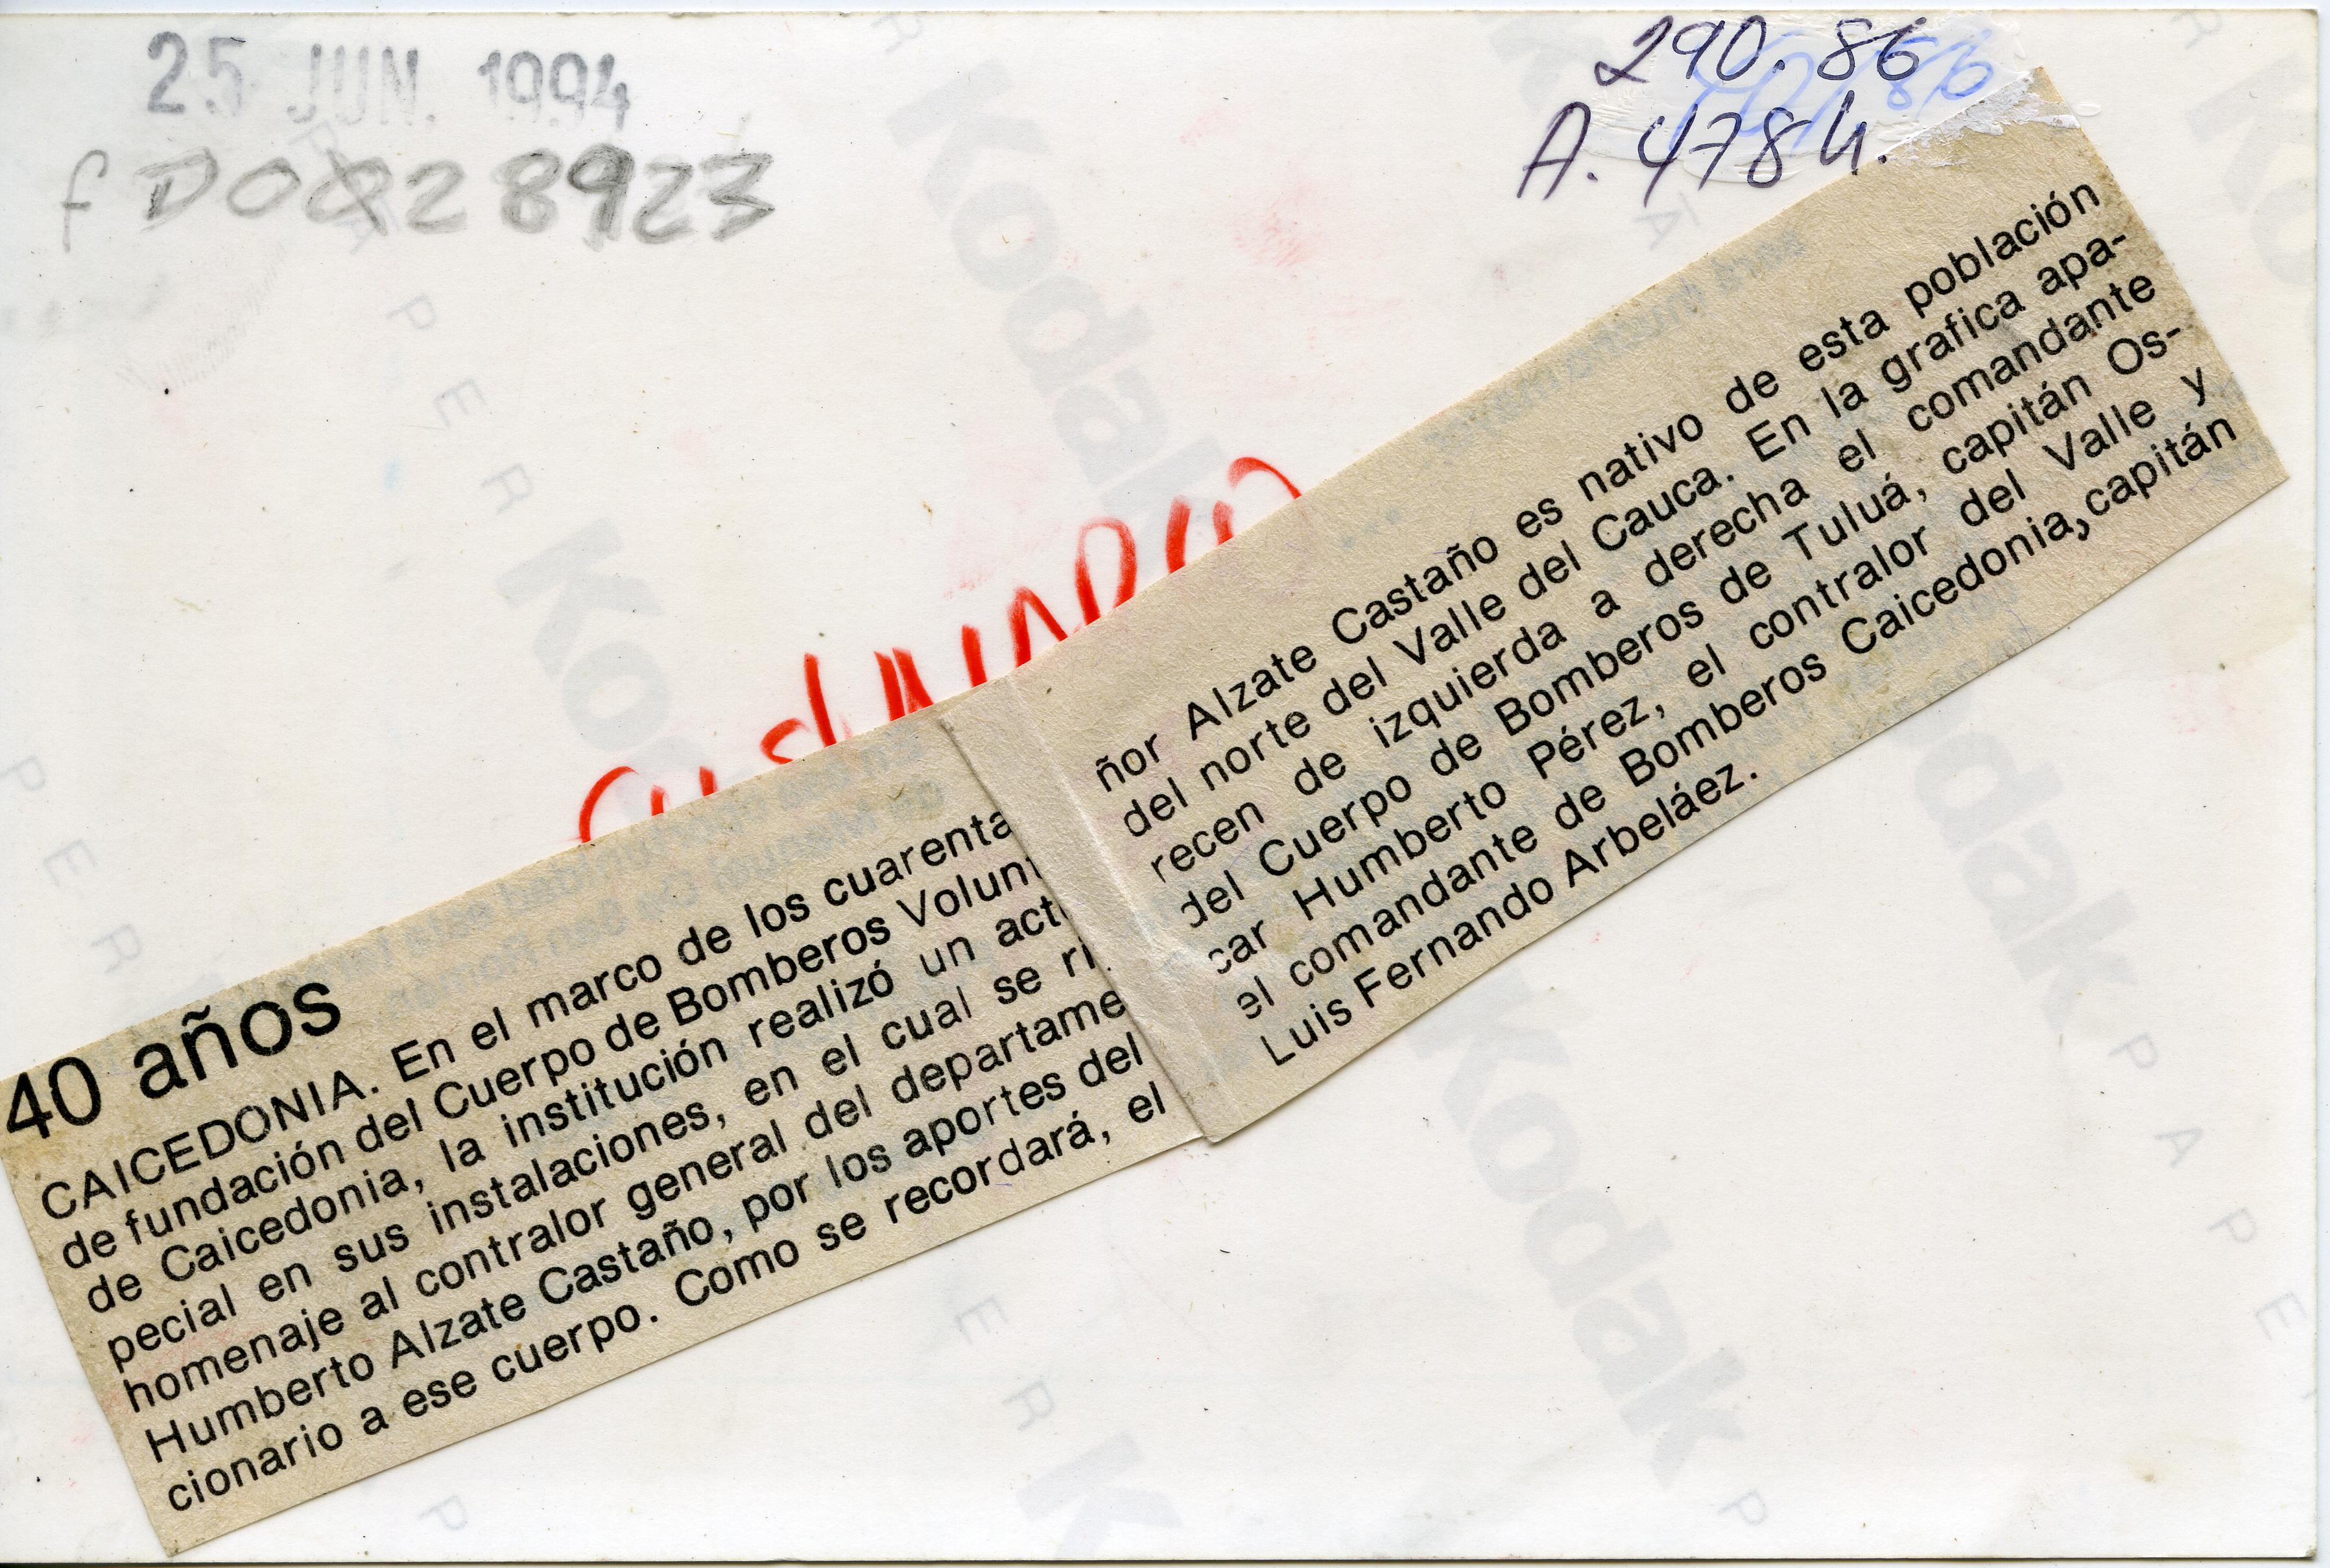 25 JUN. 1994
290.86
A. 4784.
40 años
CAICEDONIA. En el marco de los cuarenta
de fundación del Cuerpo de Bomberos Volun
de Caicedonia, la institución realizó un act
pecial en sus instalaciones, en el cual se ri
homenaje al contralor general del departame
Humberto Alzate Castaño, por los aportes del
cionario a ese cuerpo. Como se recordará, el
ñor Alzate Castaño es nativo de esta población
del norte del Valle del Cauca. En la grafica apa-
recen de izquierda a derecha el comandante
del Cuerpo de Bomberos de Tuluá, capitán Os-
car Humberto Pérez, el contralor del Valle y
el comandante de Bomberos Caicedonia, capitán
Luis Fernando Arbeláez.
Kodak
PAPER